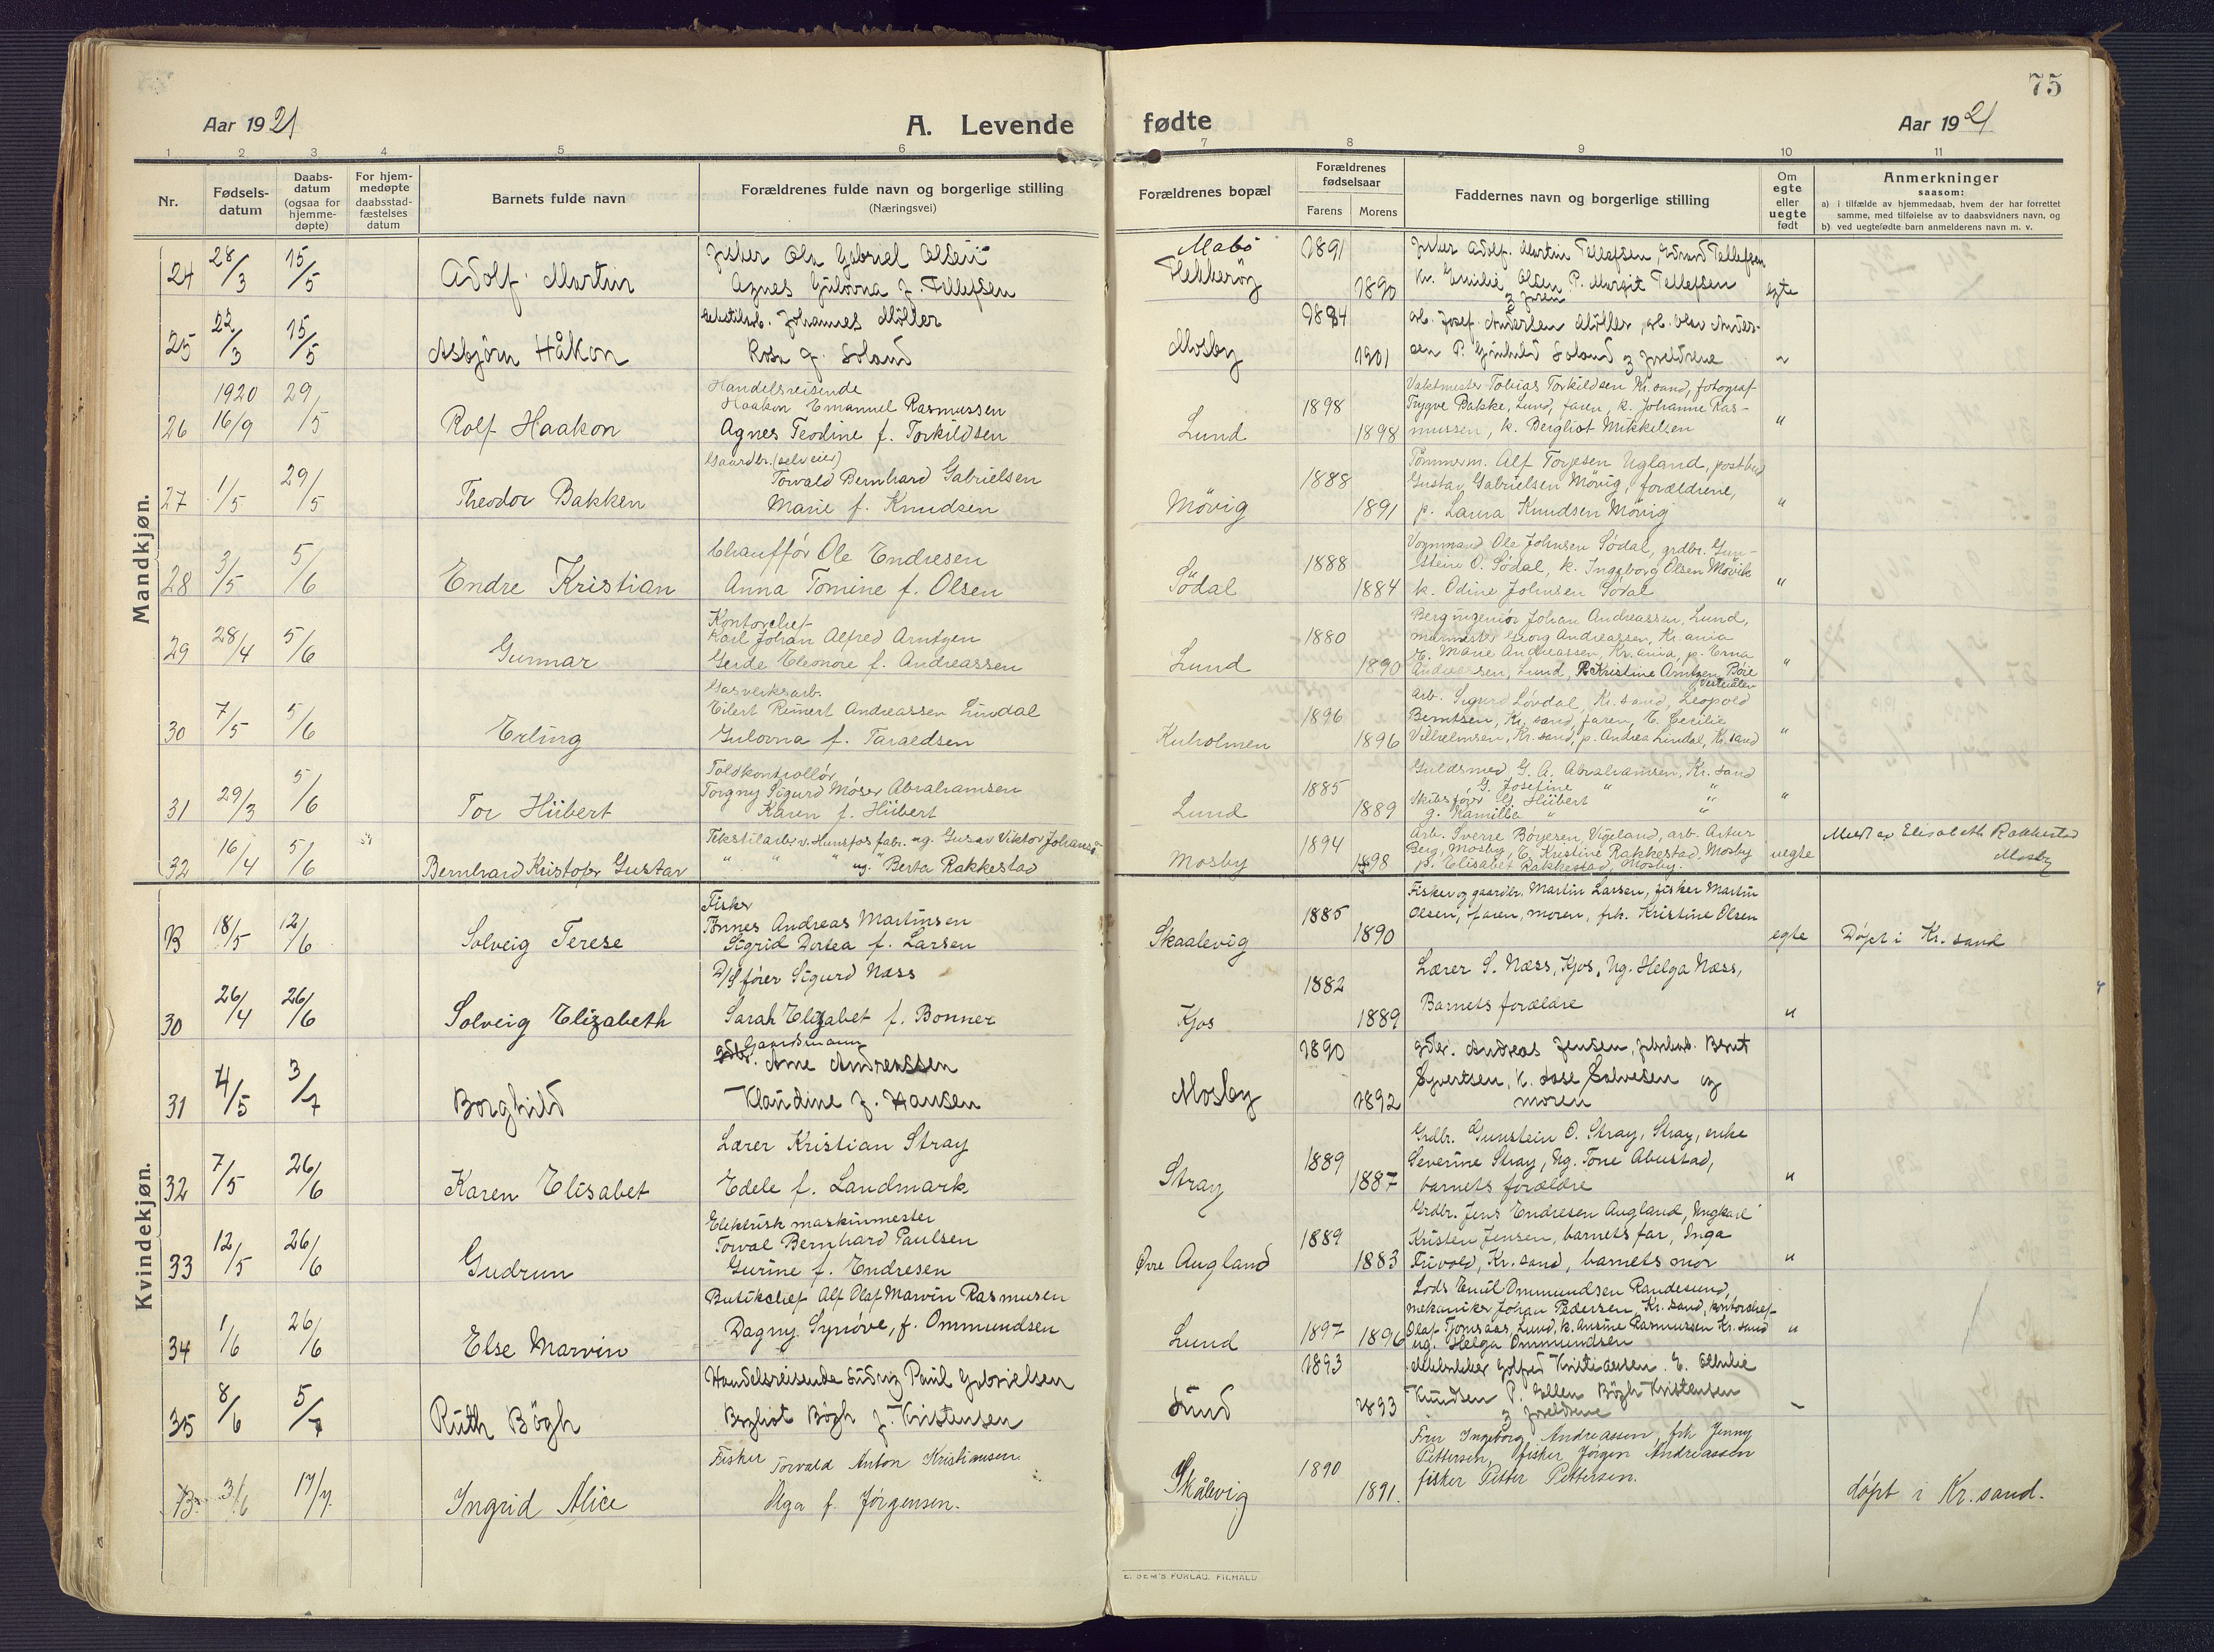 75
Aar 1921
A. Levende
fødte
Aar 1921
1 2 3 4 5 6 7 8 9 10 11
Nr.
Fødsels-
datum
Daabs-
datum
(ogsaa for
hjemme-
døpte)
For hjem-
medøpte
daabsstad-
fæstelses
datum
Barnets fulde navn
Forældrenes fulde navn og borgerlige stilling
(Næringsvei)
Forældrenes bopæl
Forældrenes
fødselsaar
Farens Morens
Faddernes navn og borgerlige stilling
Om
egte
eller
uegte
født
Anmerkninger
saasom:
a) i tilfælde av hjemmedaab, hvem der har forrettet
samme, med tilføielse av to daabsvidners navn, og
b) ved uegtefødte barn anmelderens navn m. v.
Mandkjøn.
24 28/3 15/5 Adolf Martin
Fisker Ola Gabriel Olsen
Agnes Gulovna f. Tellefsen
Mabø
Flekkerøy
1891 1890
Fisker Adolf Martin Tellefsen, Edvard Tellefsen
Kv. Emilie Olsen P. Margit Tellefsen
egte
25 22/3 15/5 Asbjörn Håkon
Johannes Møller
Rosa f. Soland
Mosby
1884 1901
arb. Josef Andersen Møller, arb. Olav Anders-
sen P. Gunhild Soland og foreldrene
"
26 1920 16/9 29/5 Rolf Haakon
Handelsreisende
Haakon Emanuel Rasmussen
Agnes Teodine f. Torkildsen
Lund
1898 1898
Vaktmester Tobias Torkildsen Kr.sand, fotograf
Trygve Bakke, Lund, faren, k. Johanne Ras-
mussen, k. Bergliot Mikkelsen
"
27 1/5 29/5 Theodor Bakken
Gaardbr. (selveier)
Torvald Bernhard Gabrielsen
Marie f. Knudsen
Mövig
1888 1891
Tömmerm. Alf Torjesen Ugland, postbud
Gustav Gabrielsen Mövig, forældrene,
p. Laura Knudsen Mövig
"
28 3/5 5/6 Endre Kristian
Chaufför Ole Endresen
Anna Tomine f. Olsen
Södal
1888 1884
Vognmand Ole Johnsen Södal, grdbr. Gun-
stein O. Södal, k. Ingeborg Olsen Mövik
k. Odine Johnsen Södal
"
29 28/4 5/6 Gunnar
Kontorchef
Karl Johan Alfred Arntzen
Gerde Eleonore f. Andreassen
Lund
1880 1890
Bergingeniør Johan Andreassen, Lund,
Georg Andreassen, Kr.ania
E. Marie Andreassen, Kr.ania, p. Erna
Andreassen, Lund, Kristine Arntzen, Bøie
Vesteraalen
"
30 7/5 5/6 Erling
Gasverksarb.
Eilert Reinert Andreassen Lindal
Gulovna f. Taraldsen
Kuholmen
1896 1896
Arb. Sigurd Løvdal, Kr.sand, Leopold
Berntsen, Kr.sand, faren, E. Cecilie
Vilhelmsen, Kr.sand, p. Andrea Lindal, Kr.sand
"
31 29/3 5/6 Tor Hübert
Toldkontrollør
Torgny Sigurd Møser Abrahamsen
Karen f. Hübert
Lund
1885 1889
Guldsmed G. A. Abrahamsen, Kr.sand
G. Josefine " "
Skibsfører G. Hübert "
g. Kamilla " "
"
32 16/4 5/6 Bernhard Kristofer Gustav
Tekstilarb. v. Hunsfos fabr. ug. Gustav Viktor Johansson
" " " ug. Berta Rakkestad
Mosby
1894 1898
Arb. Sverre Bøyesen, Vigeland, arb. Artur
Berg, Mosby, E. Kristine Rakkestad, Mosby
p. Elisabet Rakkestad, Mosby.
uegte
Meldt av Elisabeth Rakkestad
Mosby
Kvindekjøn.
B 18/5 12/6 Solveig Terese
Fisker
Tønnes Andreas Martinsen
Sigrid Dortea f. Larsen
Skaalevig
1885 1890
Fisker og gaardbr. Martin Larsen, fisker Martin
Olsen, faren, moren, frk. Kristine Olsen
egte
Døpt i Kr.sand
30 26/4 26/6 Solveig Elizabeth
D/S fører Sigurd Næss
Sarah Elizabet f. Bonner
Kjos
1882 1889
Lærer S. Næss, Kjos, Ug. Helga Næss,
Barnets forældre
"
31 4/5 3/7 Borghild
Gaardsmann
Arne Andreassen
Klaudine f. Hansen
Mosby
1890 1892
gdbr. Andreas Jensen, Bernt
Syvertsen, k. Lase Salvesen og
moren
32 7/5 26/6 Karen Elisabet
Lærer Kristian Stray
Edele f. Landmark
Stray
1889 1887
Grdbr. Gunstein O. Stray, Stray, enke
Severine Stray, Ug. Tone Abustad,
barnets forældre
"
33 12/5 26/6 Gudrun
Elektrisk maskinmester
Torval Bernhard Paulsen
Gurine f. Endresen
Øvre Augland
1889 1883
Grdbr. Jens Endresen Augland, Ungkarl
Kristen Jensen, barnets far, Inga
Trivold, Kr.sand, barnets mor
"
34 1/6 26/6 Else Marvin
Butikchef Alf Olaf Marvin Rasmusen
Dagny Synöve, f. Ommundsen
Lund
1897 1896
Lods Emil Ommundsen Randesund,
mekaniker Johan Pedersen, Kr.sand, kontorchef
Olaf Tjomsaas, Lund, k. Ansine Rasmussen Kr.sand
ug. Helga Ommundsen
"
35 8/6 5/7 Ruth Bögh
Handelsreisende Ludvig Paul Gabrielsen
Bergliot Bögh f. Kristensen
Lund
1893 1893
Golfred Kristiansen. E. Emilie
Knudsen P. Ellen Bögh Kristensen
og foreldrene
"
B 3/6 17/7 Ingrid Alice
Fisker Torvald Anton Kristiansen
Olga f. Jörgensen.
Skålevig
1890 1891.
Fru Ingeborg Andreassen, frk Jenny
Pettersen, fisker Jörgen Andreassen
fisker Petter Pettersen.
döpt i Kr.sand.
E. SEM'S FORLAG, FR.HALD